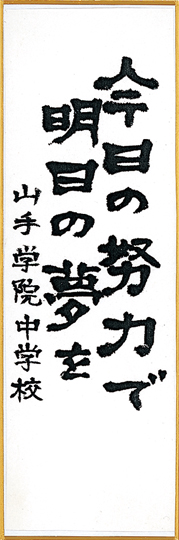 今日の努力で
明日の夢を
山手学院中学校